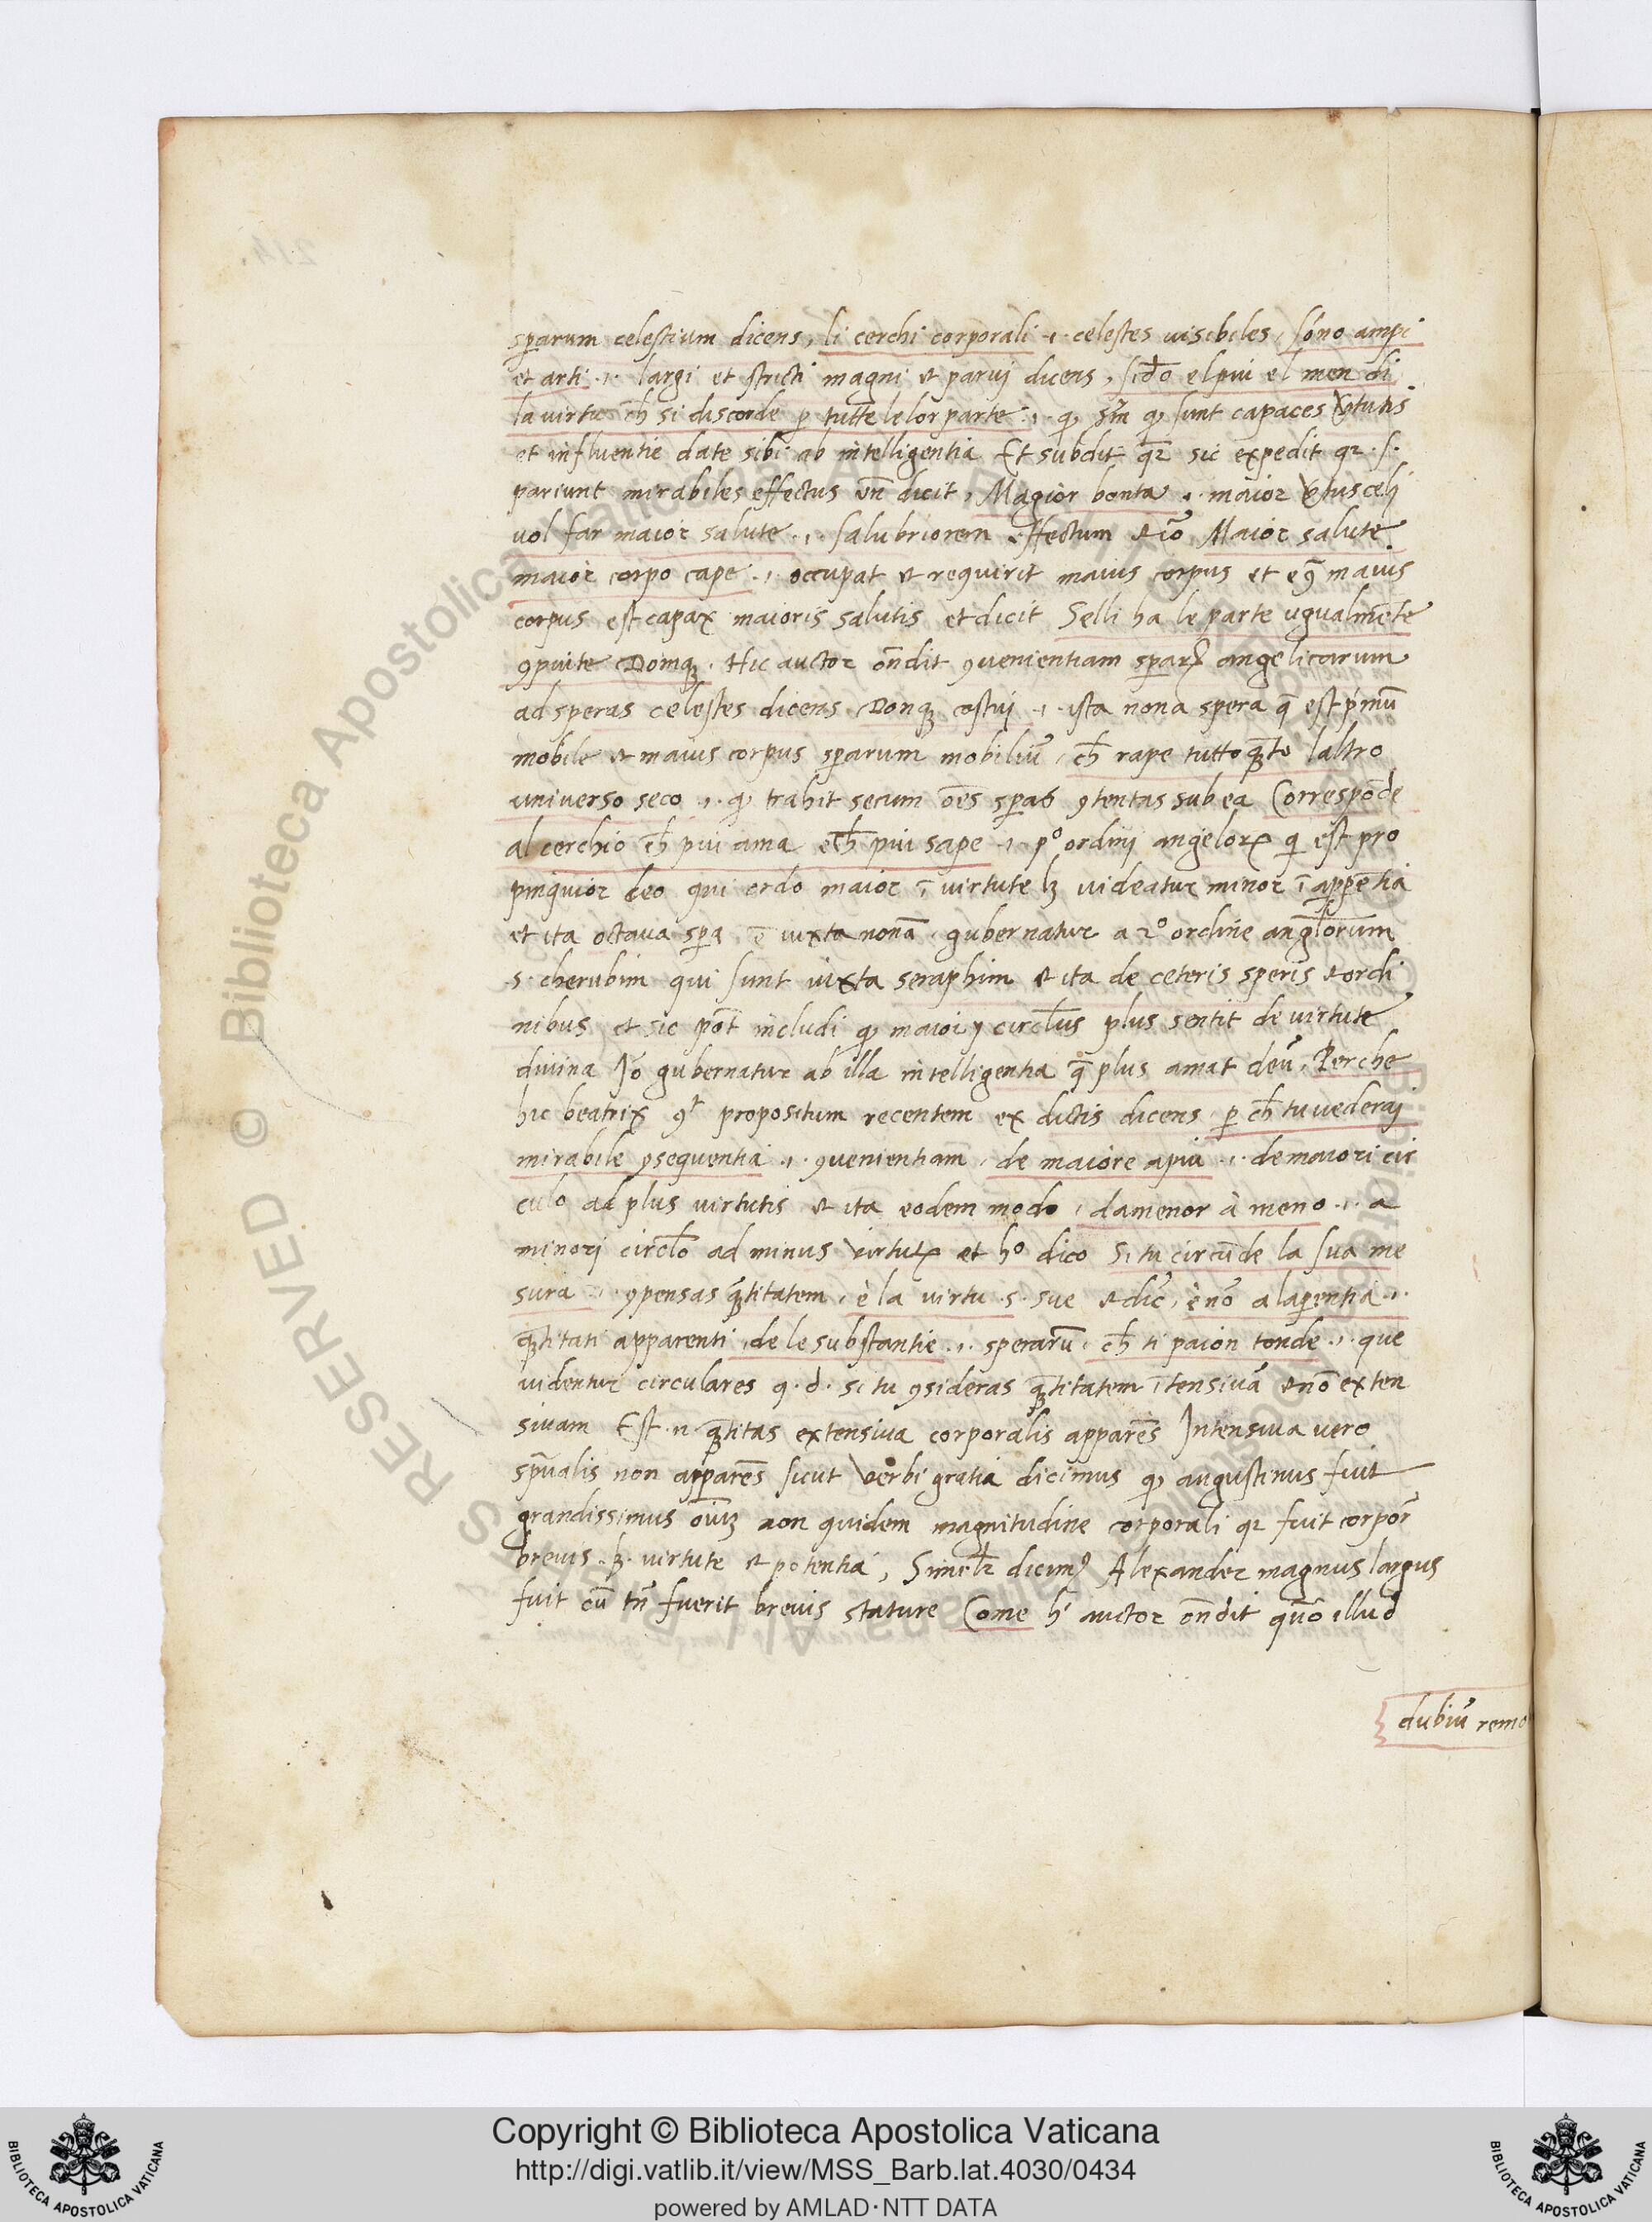 sperarum celestium dicens, li cerchi corporali .i. celestes uisibiles, sono ampi
et arti .i. largi et stricti magni et parui dicens, sicdo el piu el men di
la virtu ch̄ si discorde ꝑ tutte le lor parte .i. qꝫ sm̄ qꝫ sunt capaces v̄tutis
et influentie date sibi ab intelligentia Et subdit qꝛ sic expedit qꝛ .s.
pariunt mirabiles effectus vn̄ dicit, Magior bonta .i. maior v̄tus celi
uol far maior salute .i. salubriorem effectum et iō Maior salute
maior corpo cape .i. occupat et requirit maius corpus et eꝯ maius
corpus est capax maioris salutis et dicit Selli ha le parte ugualmēte
ꝯpuite Donqꝫ. Hic auctor on̄dit ꝯuenientiam sperarꝝ angelicarum
ad speras celestes dicens Donqꝫ costui .i. ista nona spera q̄ est pimū
mobile et maius corpus sperarum mobiliū, ch̄ rape tutto qꝫto laltro
universo seco .i. qꝫ trahit secum oēs speras ꝯtentas sub ea Correspōde
al cerchio ch̄ piu ama ech̄ piu sape .i. pº ordini angelorꝝ qi est pro
pinquior deo qui ordo maior ī virtute lꝫ videatur minor ī apparētia
et ita octava spera ē iuxta nonā gubernatur a 2º ordine anglorum
.s. cherubim qui sunt iuxta seraphim et ita de ceteris speris et ordi
nibus et sic pōt includi qꝫ maior circl̄us plus sentit de virtute
divina Iō gubernatur ab illa intelligentia q̄ plus amat deū, Perche
hic beatrix propositum recentem ex dictis dicens ꝑ ch̄ tu vederaj
mirabile ꝯsequentia .i. ꝯuenientiam, de maiore apiu .i. de maiori cir
culo ad plus virtutis et ita eodem modo, damenor à meno .i. a
minori circl̄o ad minus virtutꝭ et hº dico Si tu circūde la sua me
sura .i. ꝯpensas qꝫtitatem, è la virtu .s. sue et dic̄, è nō a laperentia .i.
qꝫtitati apparenti, de le substantie .i. sperarū, ch̄ ti paion tonde .i. que
videntur circulares q.d. si tu ꝯsideras qꝫtitatem ītensivā et nō exten
sivam Est .n. qꝫtitas extensiva corporalis apparēs Intensiva vero
spūalis non apparēs sicut verbi gratia dicimus qꝫ augustinus fuit
grandissimus oīuꝫ non quidem magnitudine corporali qꝛ fuit corpor̄
brevis .sꝫ. virtute et potentia, Similr̄ dicimꝰ Alexander magnus largus
fuit cū tn̄ fuerit brevis stature Come hi auctor on̄dit quō illud
dubiū remo